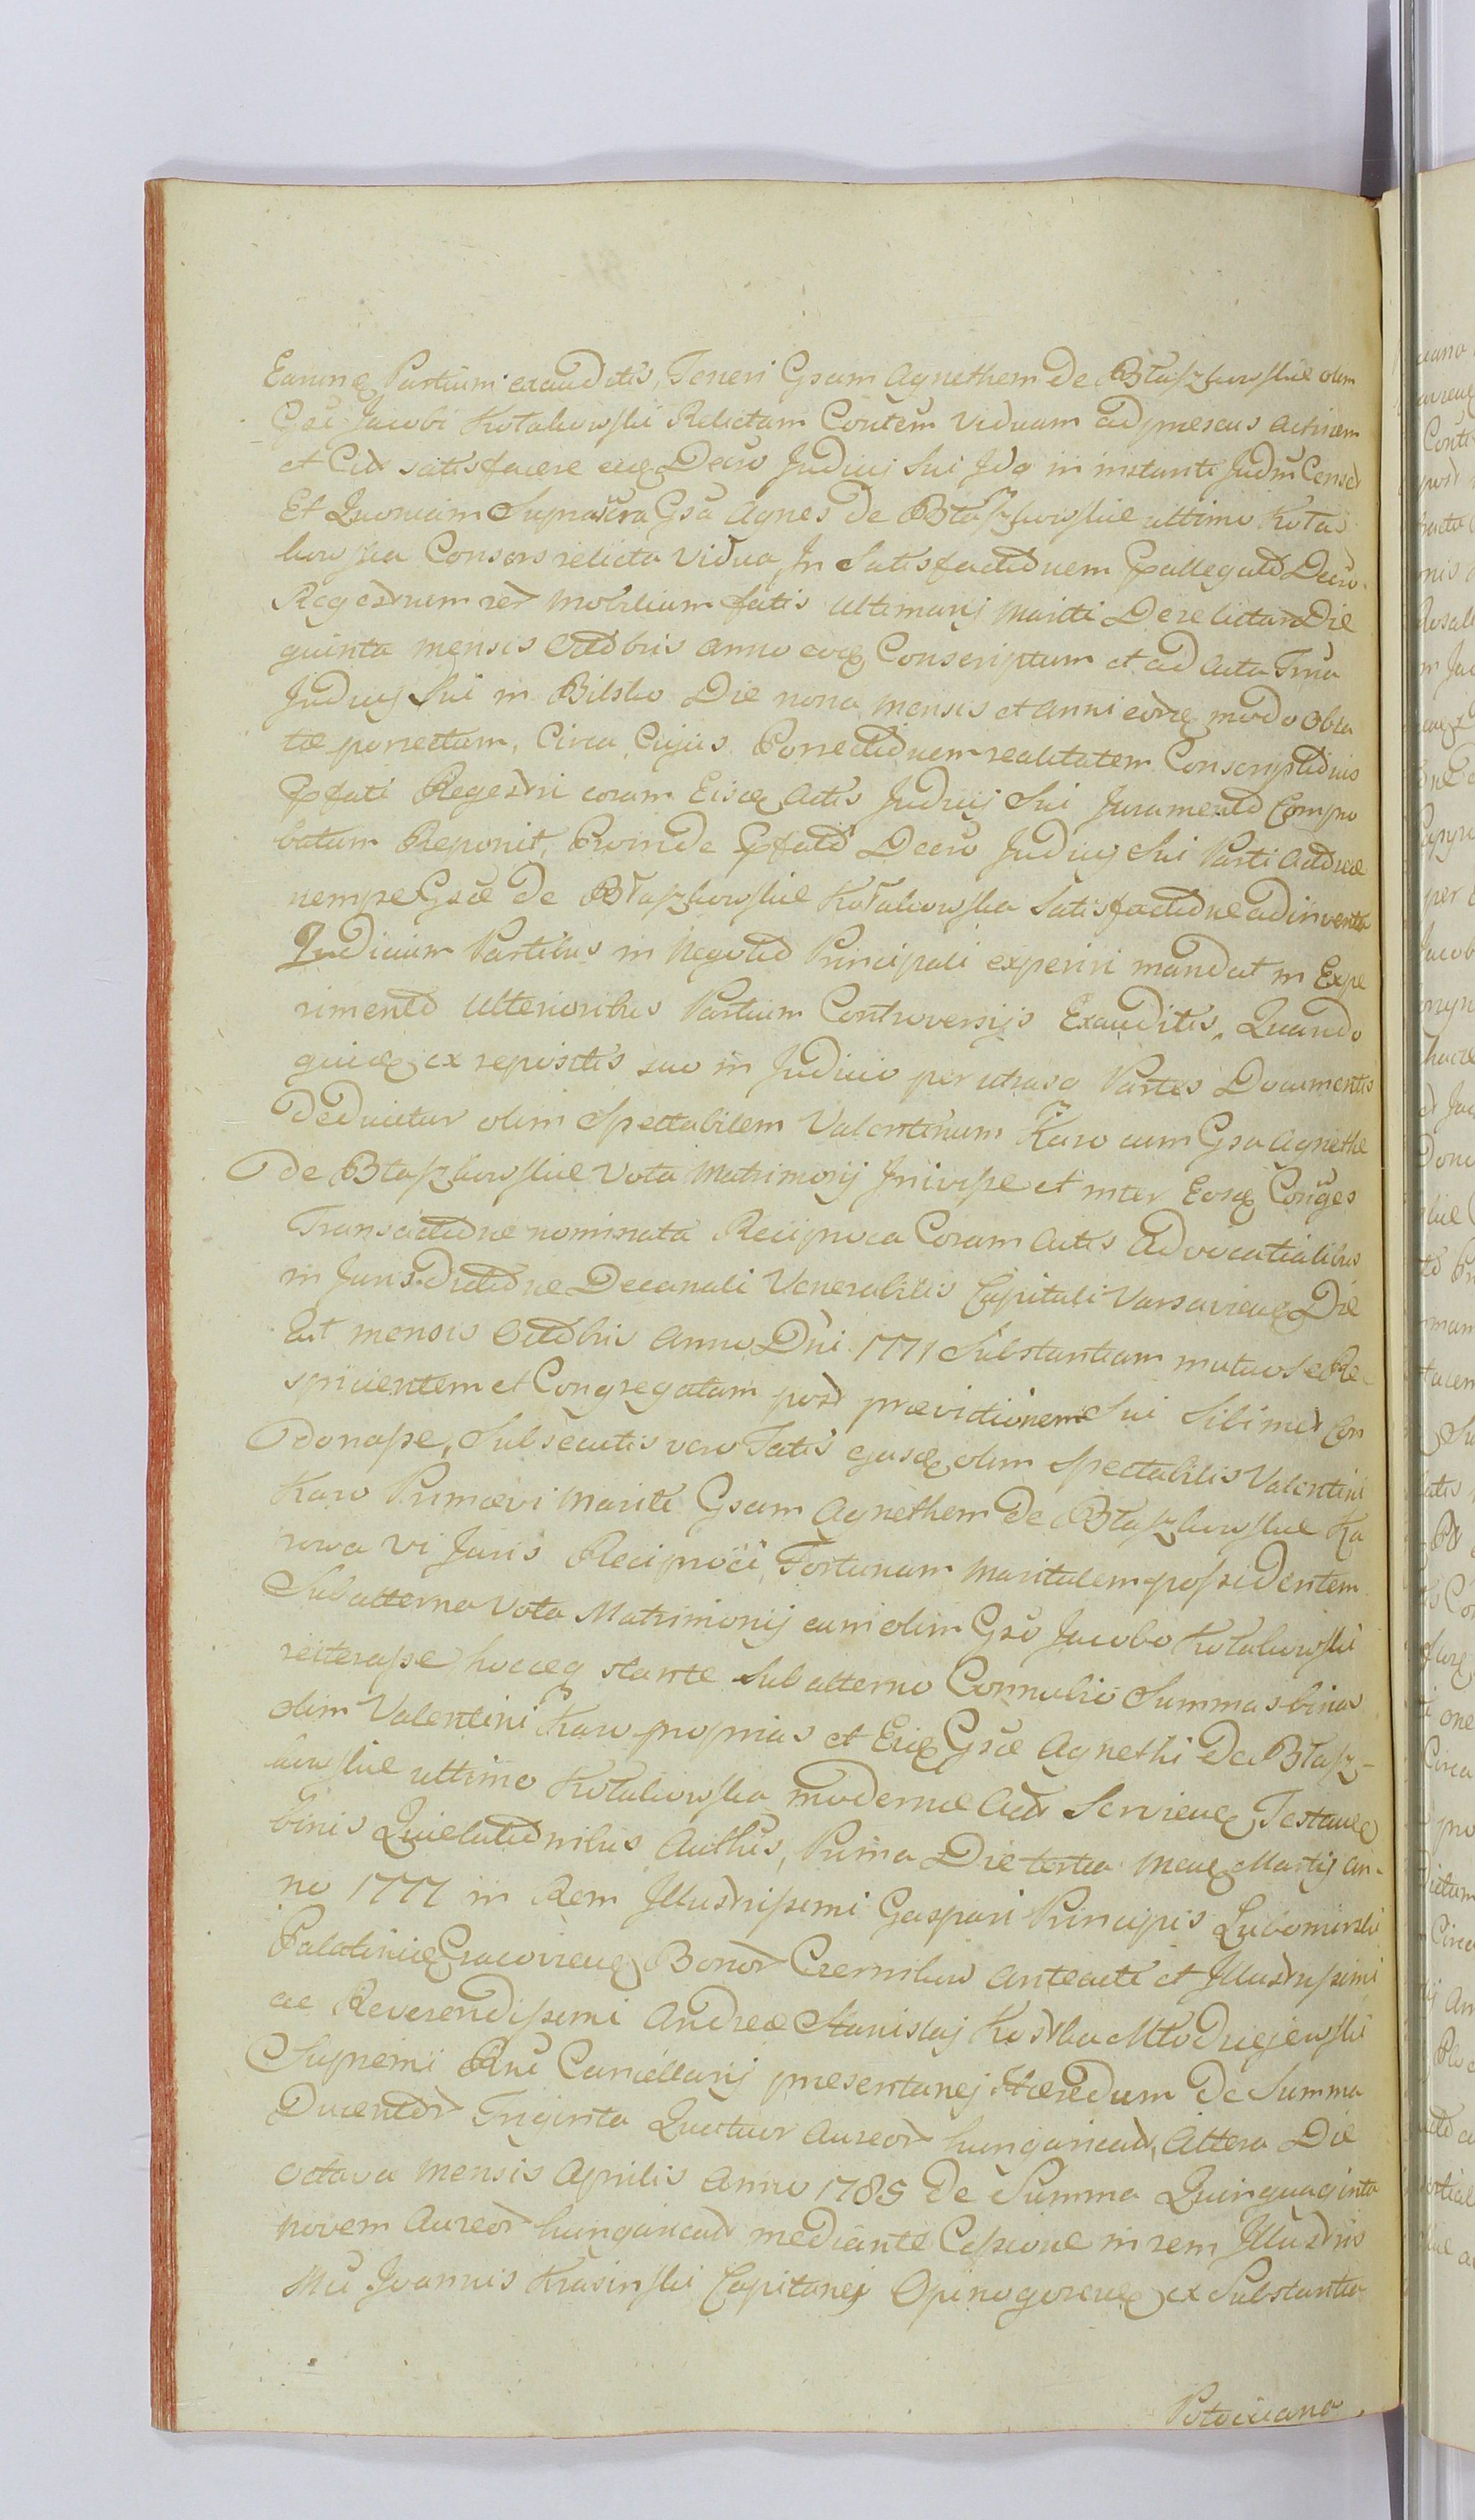 Earumq Partium exauditis, Teneri Gsam Agnethem de Błaszkowskie olim
Gsi Jacobi Kołakowski Relictam Contem Viduam ad praesens Actricem
et Citt satisfacere eidq Decro Judicij Sui Jdq in instanti Judm Censet
Et Quoniam Suprascra Gsa Agnes de Błaszkowskie ultimo Koła
kowska Consors relicta Vidua, In Satisfactionem Pallegati Decro
Regestrum rer Mobilium fatis Ultimarij Mariti Derelictar Die
quinta mensis Octobris Anno eoq Conscriptum et ad Acta Tma
Judicij Sui in Bilsko Die nona mensis et Anni eorq modo Obla
tæ porrectum, Circa Cujus Porrectionem realitatem Conscriptionis
Pfati Regestri coram Eisq Actis Judicij Sui Juramento Compro
batam Reponit, Proinde Pfato Decro Judicij Sui Parti Actoreæ
nempe Gsæ de Błaszkowskie Kołakowska Satisfactione adinventa
Judicium Partibus in Negotio Principali experiri mandat in Expe
rimento Ulterioribus Partium Controversijs Exauditis, Quando
quidq ex repositis suo in Judicio per utrasq Partes Documentis
Deducitur olim Spectabilem Valentinum Karo cum Gsa Agnethe
de Błaszkowskie Vota Matrimonij Inivisse et inter Eosq Conges
Transactione nominata Reciproca Coram Actis Advocatialibus
in Jurisdictione Decanali Venerabilis Capituli Varsavienq Die
mensis Octobris Anno Dni 1771 Substantiam mutuo se Re
spicientem et Congregatam post prævitionem Sui Sibimet Con
donasse, Subsecutis vero Fatis ejusdq olim Spectabilis Valentini
Karo Primævi Mariti Gsam Agnethem de Błaszkowskie Ka
rowa vi Juris Reciproci, Fortunam Maritalem possidentem
Subalterna Vota Matrimonij cum olim Gso Jacobo Kołakowski
reiterasse, hocceq stante Subalterno Connubio Summas binas
olim Valentini Karo proprias et Eidq Gsæ Agnethi de Błasz-
kowskie ultimo Kołakowska modernæ Act Servienq Testanq
binis Quietationibus Autbus, Prima Die tertia Menq Martij An-
no 1777 in Rem Illustrissimi Gaspari Principis Lubomirski
Palatinidq Cracovienq Bonor Czernikow anteacti et Illustrissimi
ac Reverendissimi Andreæ Stanislaj Kostka Młodziejewski
Supremi Rni Cancellarij præsentanej Hæredum de Summa
Ducentor Triginta Quatuor Aureor hungaricalr, Altera Die
Octava mensis Aprilis Anno 1785 de Summa Quinquaginta
novem Aureor hungaricalr mediante Cessione in rem Illustris
Mi Joannis Krasinski Capitanej Opinogorenq ex Substantia
Potociana